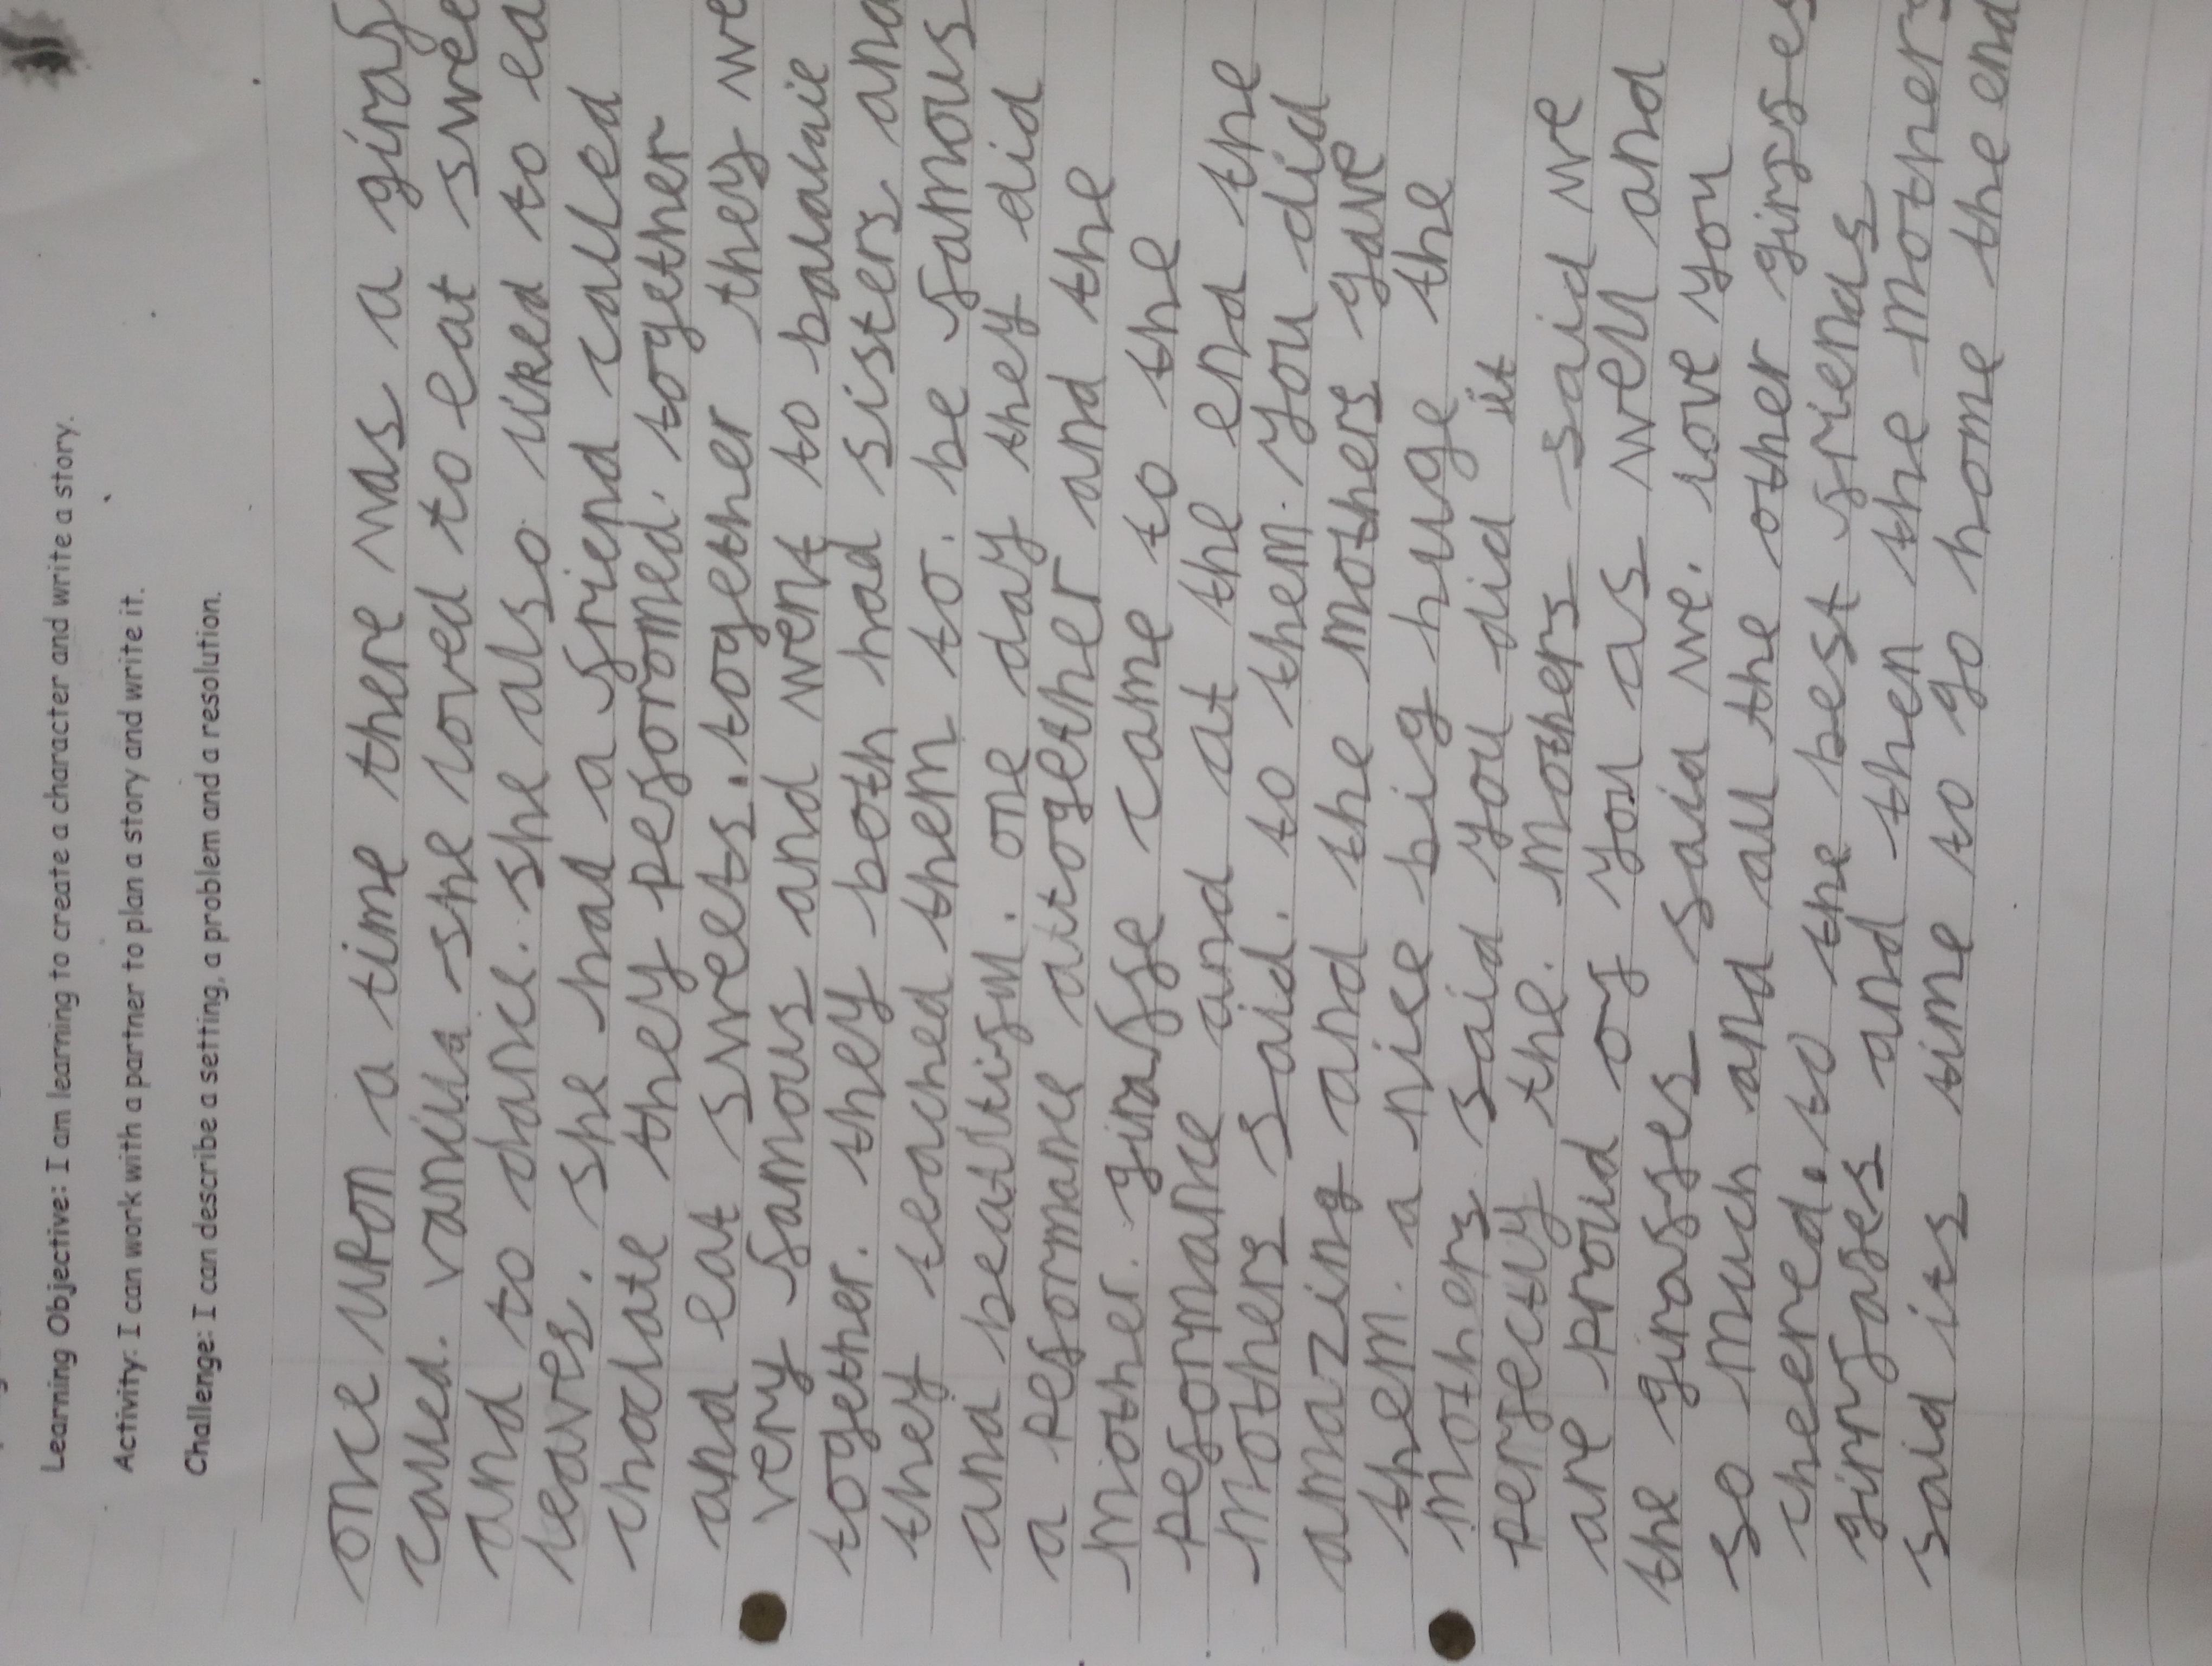 Learning Objective: I am learning to create a character and write a story.
Activity: I can work with a partner to plan a story and write it.
Challenge: I can describe a setting, a problem and a resolution.
once upon a time there was a giraf
called. vanilla she loved to eat swee
and to dance. she also liked to ea
leaves. she had a friend called
choclate they peformed. together
and eat sweets. together they we
very famous and went to balwie
together. they both had sisters and
they teached them to. be famous
and beatifull. one day they did
a peformance altogether and the
mother. giraffe came to the
peformance and at the end the
mothers said. to them. you did
amazing and the mothers gave
them. a nice big huge the
mothers said you did it
perfectly the. mothers said we
are proud of you as well and
the giraffes said we. love you
so much and all the other girffes
cheered. to the best friends
girrfases and then the mothers
said its time to go home the end